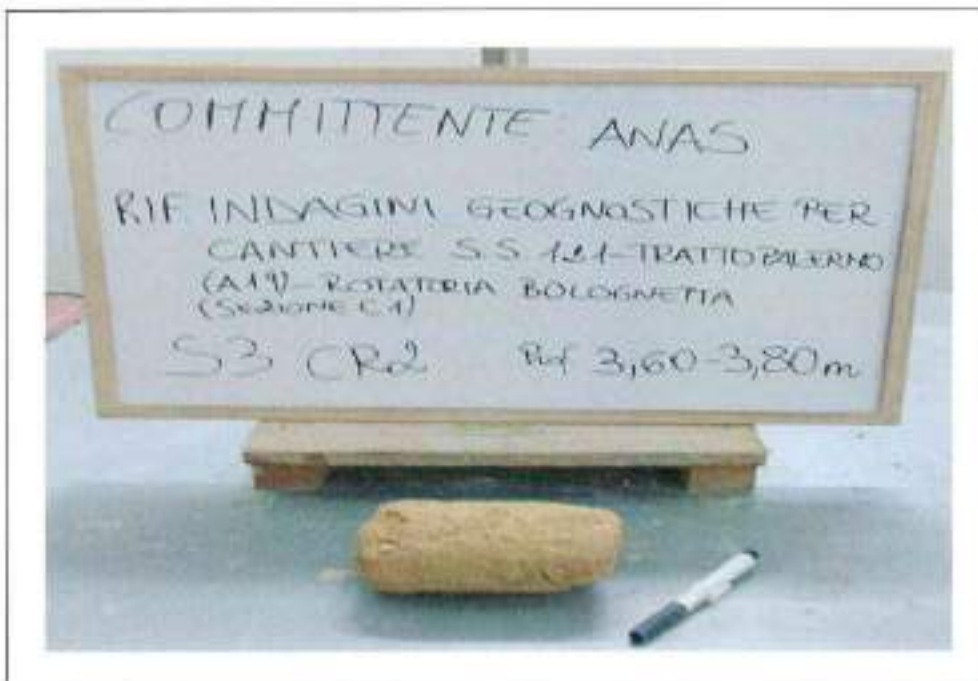 COMMITTENTE ANAS
RIF INDAGINI GEOGNOSTICHE PER
CANTIERE S.S 121-TRATTO PALERMO
(A19)-ROTATORIA BOLOGNETTA
(SEZIONE C1)
S3 CR2 Prof 3,60-3,80m